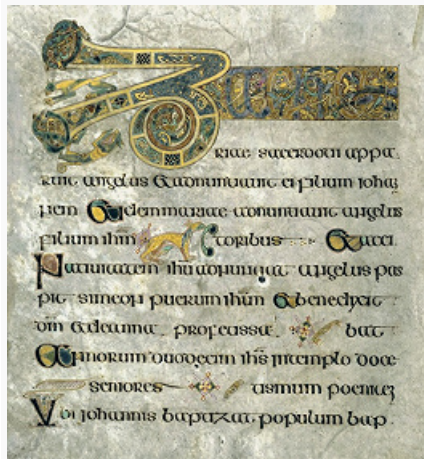 riae sacerdoti appa
ruit angelus & adnuntiauit ei filium ioha
nem & eidem mariae adnuntiauit angelus
filium ihm toribus & acci
Natiuitatem ihu adnuntiat angelus pas
pit simeon puerum ihm & benedixit
dm & de anna profetissa bat
annorum duodecim ihs in templo doce
seniores tismum
Ubi iohannis baptizat populum bap